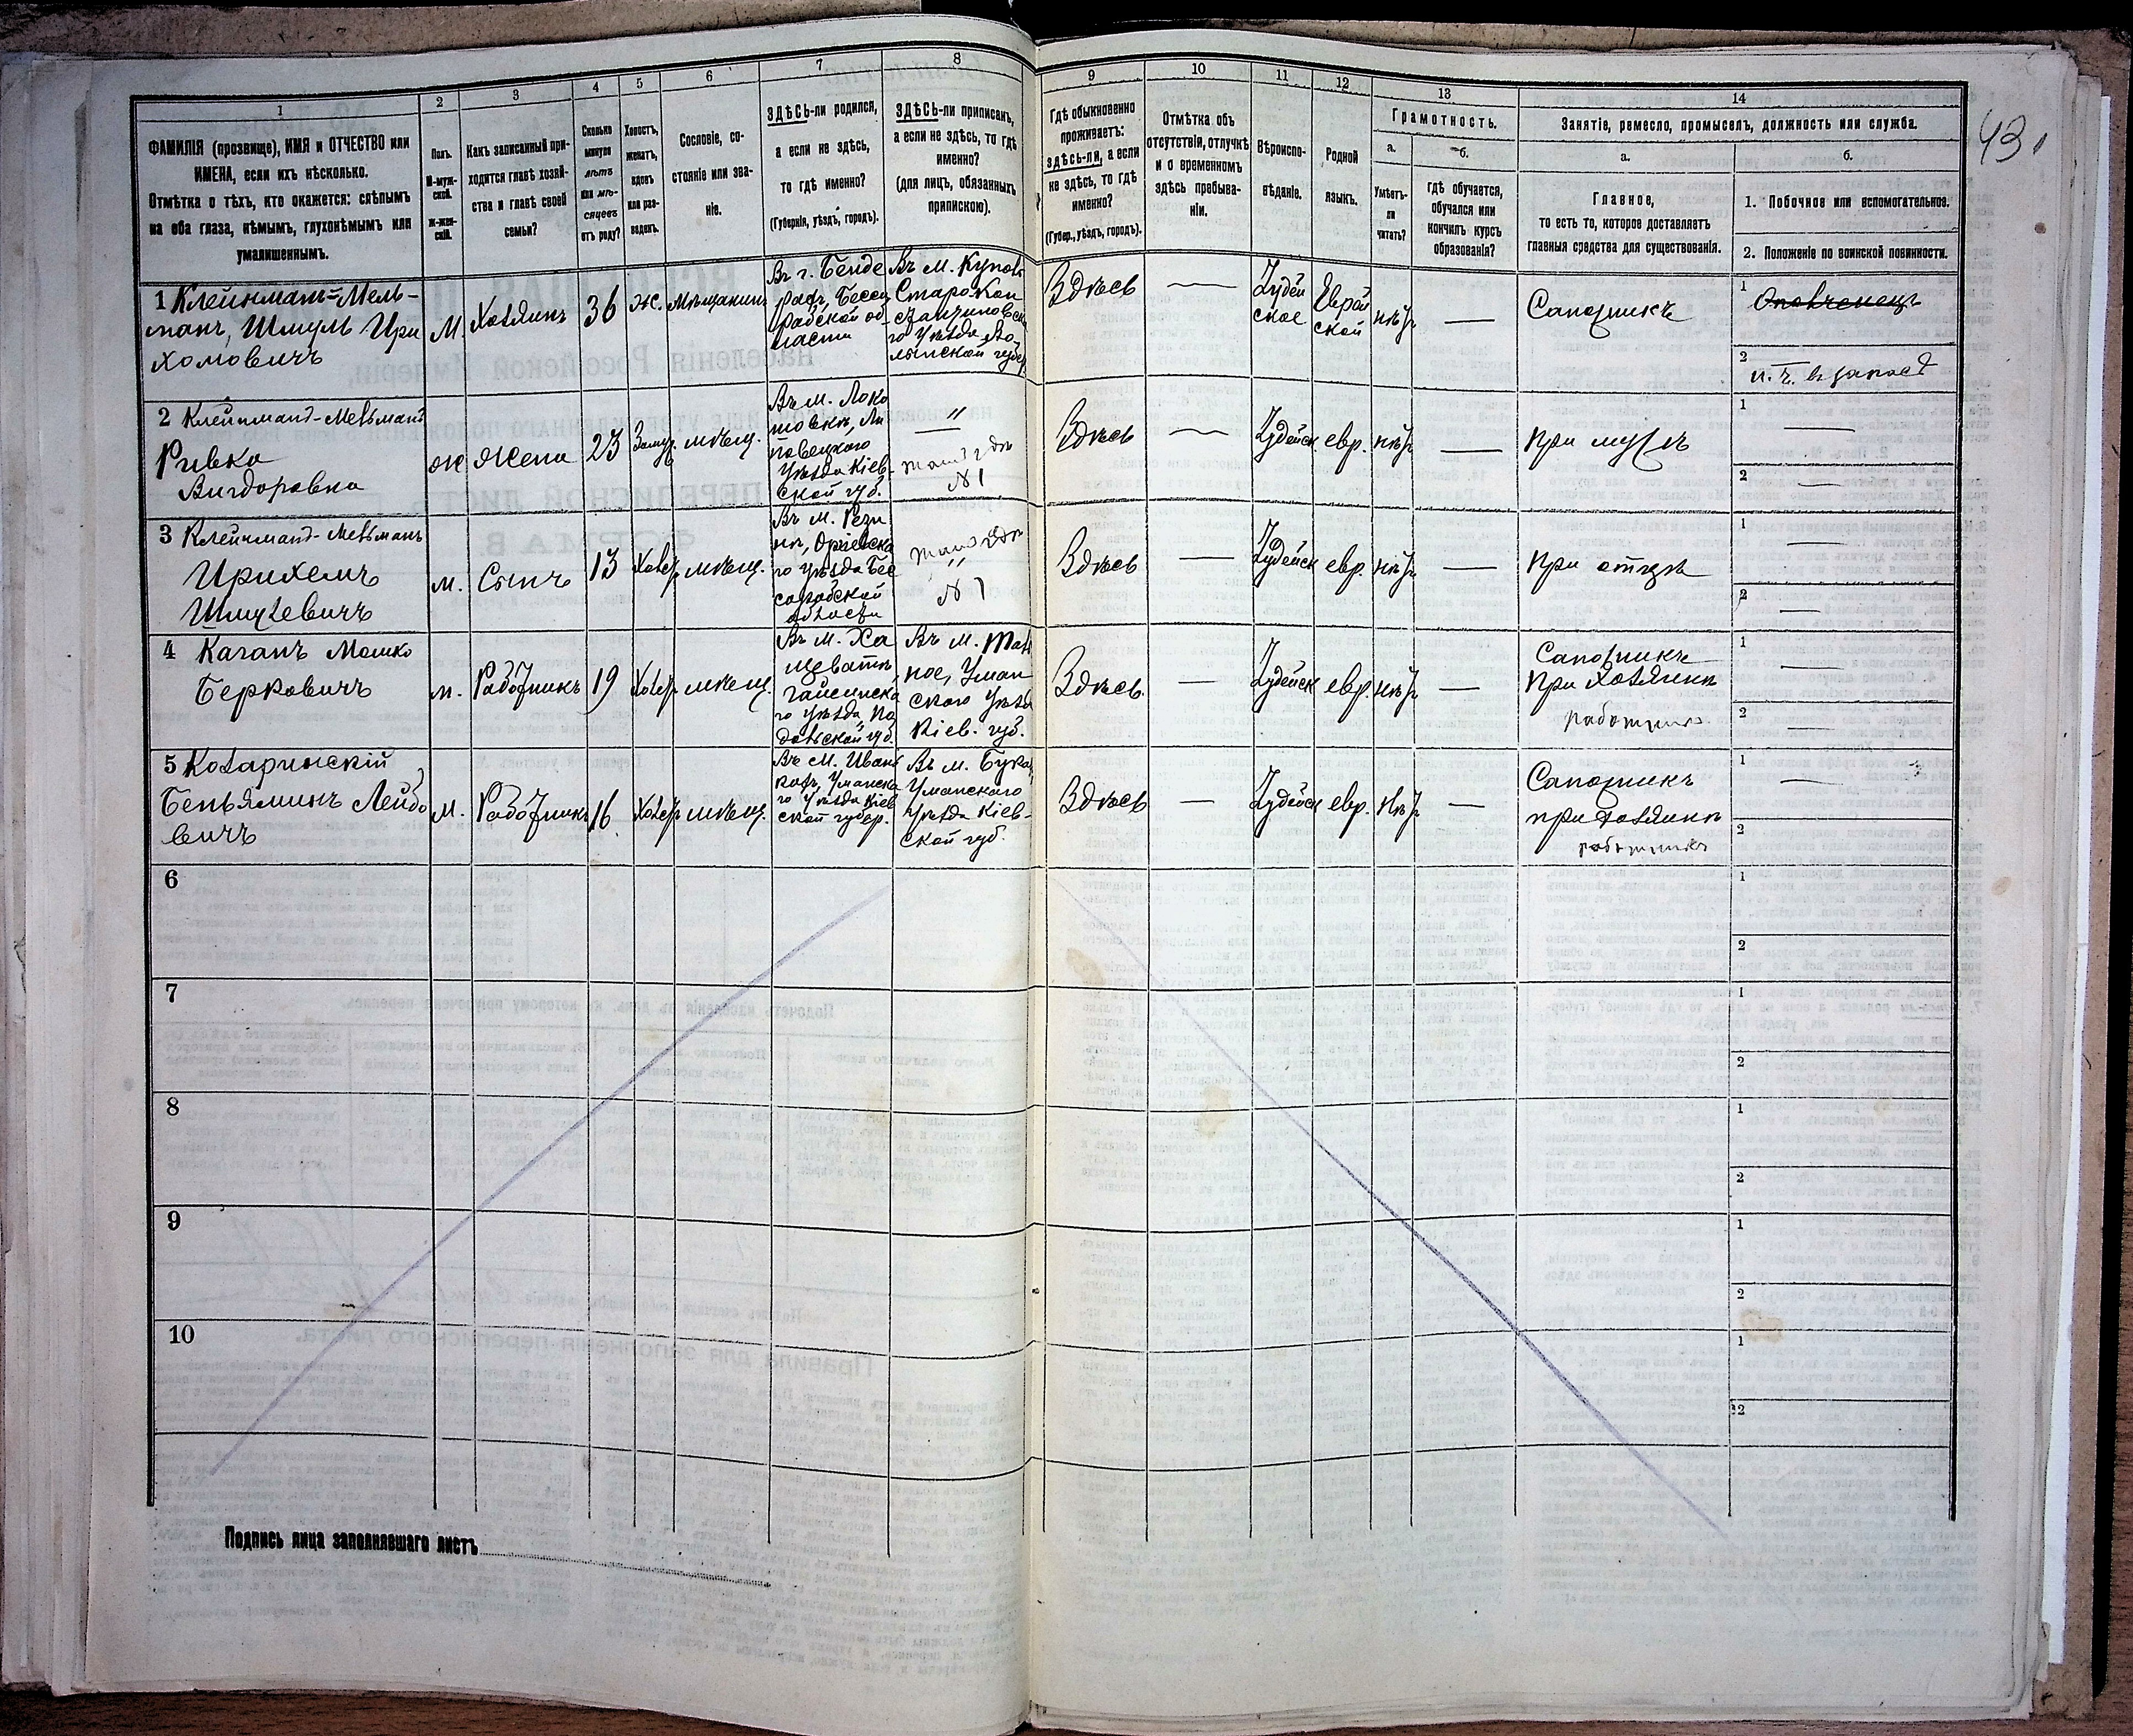 43
1
ФАМИЛІЯ (прозвище), ИМЯ и ОТЧЕСТВО или
ИМЕНА, если ихъ нѣсколько.
Отмѣтка о тѣхъ, кто окажется: слѣпымъ
на оба глаза, нѣмымъ, глухонѣмымъ или
умалишеннымъ.
2
Полъ.
М-муж-
ской.
Ж-жен-
скій.
3
Какъ записанный при-
ходится главѣ хозяй-
ства и главѣ своей
семьи?
4
Сколько
минуло
лѣтъ
или мѣ-
сяцевъ
отъ роду?
5
Холостъ,
женатъ,
вдовъ
или раз-
веденъ.
6
Сословіе, со-
стояніе или зва-
ніе.
7
ЗДѢСЬ-ли родился,
а если не здѣсь,
то гдѣ именно?
(Губернія, уѣздъ, городъ).
8
ЗДѢСЬ-ли приписанъ,
а если не здѣсь, то гдѣ
именно?
(для лицъ, обязанныхъ
припискою).
9
Гдѣ обыкновенно
проживаетъ:
здѣсь-ли, а если
не здѣсь, то гдѣ
именно?
(Губер., уѣздъ, городъ).
10
Отмѣтка объ
отсутствіи, отлучкѣ
и о временномъ
здѣсь пребыва-
ніи.
11
Вѣроиспо-
вѣданіе.
12
Родной
языкъ.
13
Грамотность.
а.
Умѣетъ-
ли
читать?
б.
гдѣ обучается,
обучался или
кончилъ курсъ
образованія?
14
Занятіе, ремесло, промыселъ, должность или служба.
а.
Главное,
то есть то, которое доставляетъ
главныя средства для существованія.
б.
1. Побочное или вспомогательное.
2. Положеніе по воинской повинности.
1 Клейнманъ-Мель-
манъ, Шмуль Ири
хомовичъ
М.
Хозяинъ
36
ж.
Мѣщанинъ
Въ г. Бенде
рахъ, Бесса
рабской об-
ласти
Въ м. Купов
Старо-Кон
стантиновска
го Уѣзда, Во-
лынской губер
Здѣсь
Іудей
ское
Еврей
ской
нѣтъ
Сапожникъ
1 Ополченецъ
2 н. ч. въ запасѣ
2 Клейнманъ-Мельманъ
Ривка
Вигдоровна
ж
Жена
23
Замуж.
мѣщ.
Въ м.
Ли
повецкаго
Уѣзда Кіев-
ской губ.
"
тамъ гдѣ
№ 1
Здѣсь
Іудейск.
евр.
нѣтъ
При мужѣ
1
2
3 Клейнманъ-Мельманъ
Ирихемъ
Шмулевичъ
м.
Сынъ
13
Холост
мѣщ.
Въ м. Рези
нѣ, Оргѣевска
го уѣзда Бес
сарабской
области
тамъ гдѣ
"
№ 1
Здѣсь
Іудейск
евр.
нѣтъ
При отцѣ
1
2
4 Каганъ Мошко
Берковичъ
м.
Работникъ
19
Холост
мѣщ.
Въ м. Ха
щеватѣ,
Гайсинска
го уѣзда, По
дольской губ.
Въ м. Таль
ное, Уман
скаго Уѣзда
Кіев. губ.
Здѣсь
Іудейск
евр.
нѣтъ
Сапожникъ
При хозяинѣ
работникъ
1
2
5
Беньяминъ Лейбо
вичъ
М.
Работникъ
16
Холост
мѣщ.
Въ м. Иван
Уманска
го Уѣзда Кіев
ской губер.
Въ м. Буки,
Уманскаго
Уѣзда Кіев-
ской губ.
Здѣсь
Іудейск
евр.
Нѣтъ
Сапожникъ
при хозяинѣ
работникъ
1
2
6
1
2
7
1
2
8
1
2
9
1
2
10
1
2
Подпись лица заполнявшаго листъ